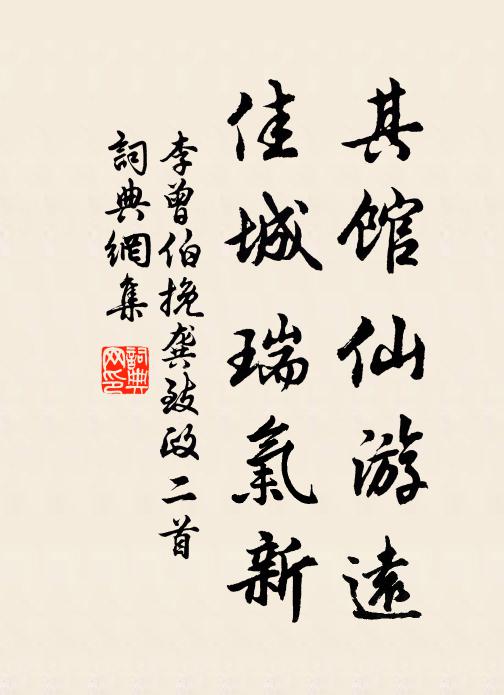 其馆仙游遠
佳城瑞氣新
李曾伯挽龔致政二首
詞典網集
詞典网印